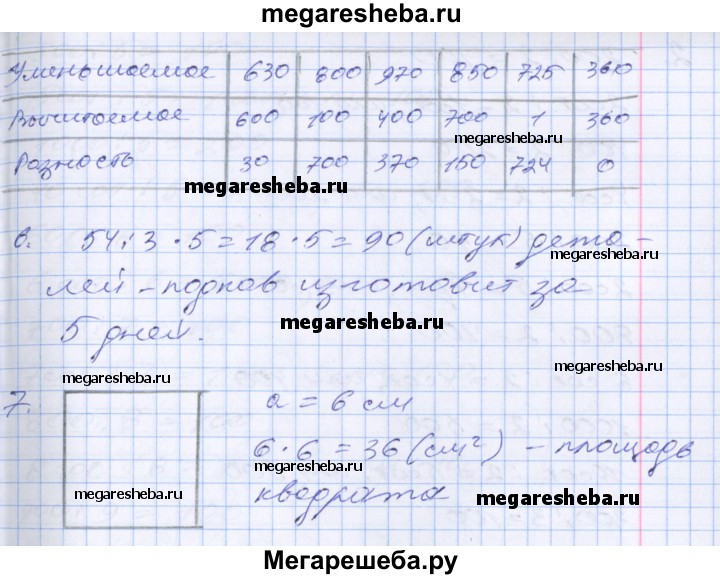 megaresheba.ru
Уменьшаемое 630 800 970 850 725 360
Вычитаемое 600 100 400 700 1 360
megaresheba.ru
Разность 30 700 370 150 724 0
megaresheba.ru
6. 54:3·5=18·5=90 (штук) дета-
megaresheba.ru
лей - подков изготовит за
megaresheba.ru
5 дней.
megaresheba.ru
7. a = 6 см
6·6=36 (см²) - площадь
megaresheba.ru
megaresheba.ru
квадрата megaresheba.ru
Мегарешеба.ру